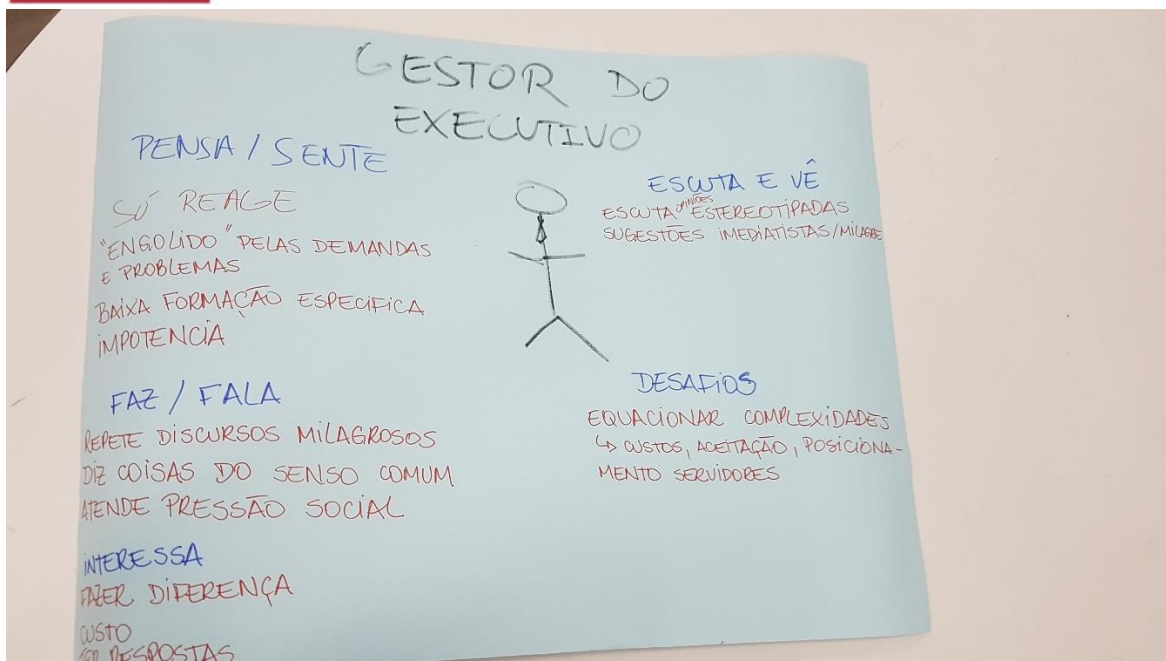 GESTOR DO
EXECUTIVO
PENSA / SENTE
SÓ REAGE
"ENGOLIDO" PELAS DEMANDAS
E PROBLEMAS
BAIXA FORMAÇÃO ESPECIFICA
IMPOTENCIA
FAZ / FALA
REPETE DISCURSOS MILAGROSOS
DIZ COISAS DO SENSO COMUM
ATENDE PRESSÃO SOCIAL
INTERESSA
FAZER DIFERENÇA
CUSTO
RESPOSTAS
ESCUTA E VÊ
ESCUTA OPINIÕES ESTEREOTIPADAS
SUGESTÕES IMEDIATISTAS/MILAGRE
DESAFIOS
EQUACIONAR COMPLEXIDADES
↳ CUSTOS, ACEITAÇÃO, POSICIONA-
MENTO SERVIDORES